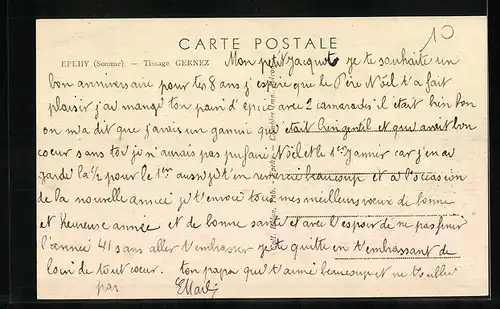 10
CARTE POSTALE
EPEHY (Somme) — Tissage GERNEZ
Mon petit Jacquot je te souhaite un
bon anniversaire pour tes 8 ans j'espère que le Père Noël t'a fait
plaisir j'ai mangé ton pain d'épice avec 2 camarades il était bien bon
on m'a dit que j'avais un gamin qui était bien gentil et qui avait bon
coeur sans toi je n'aurais pas pu faire Noël et le 1er Janvier car j'en ai
gardé la 1/2 pour le 1er aussi je t'en remercie beaucoup et à l'occasion
de la nouvelle année je t'envoie tous mes meilleurs voeux de bonne
et heureuse année et de bonne santé et avec l'espoir de ne pas finir
l'année 41 sans aller t'embrasser je te quitte en t'embrassant de
loin de tout coeur. ton papa qui t'aime beaucoup et ne t'oublie
pas